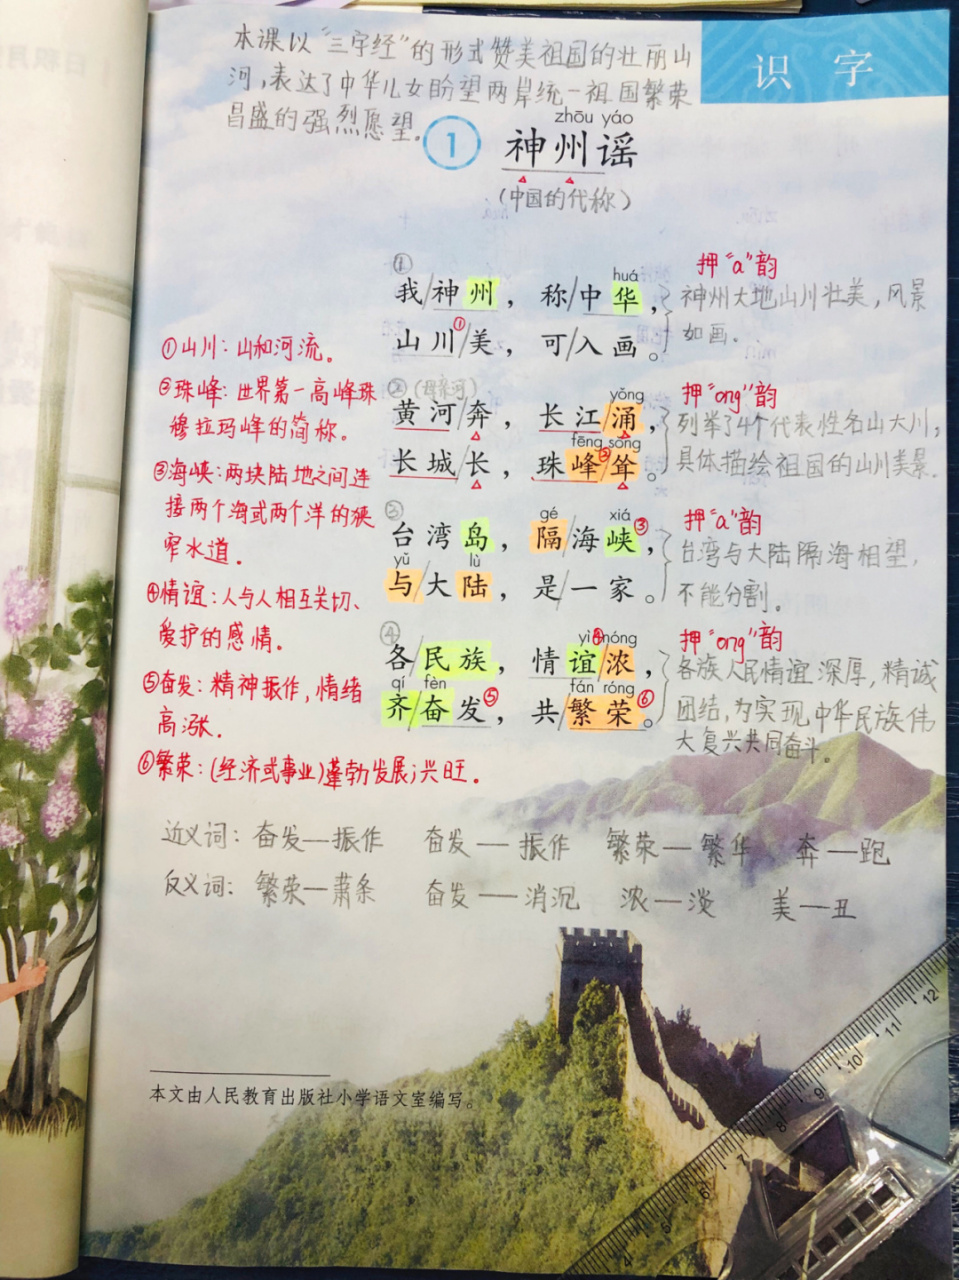 本课以“三字经”的形式赞美祖国的壮丽山
河,表达了中华儿女盼望两岸统一祖国繁荣
昌盛的强烈愿望。
识字
zhōu yáo
1 神州谣
(中国的代称)
①
huá
我/神州，称/中华，
山川①/美，可/入画。
押“a”韵
神州大地山川壮美,风景
如画.
①山川:山和河流。
②珠峰:世界第一高峰珠
穆拉玛峰的简称。
③海峡:两块陆地之间连
接两个海或两个洋的狭
窄水道.
④情谊:人与人相互关切、
爱护的感情.
⑤奋发:精神振作,情绪
高涨.
⑥繁荣:(经济或事业)蓬勃发展;兴旺.
②(母亲河)
yǒng
黄河/奔，长江/涌，
fēng sǒng
长城/长，珠峰②/耸。
押“ong”韵
列举了4个代表性名山大川,
具体描绘祖国的山川美景.
③
gé xiá
台湾岛，隔/海峡③，
yǔ lù
与/大陆，是/一家。
押“a”韵
台湾与大陆隔海相望,
不能分割.
④
yì④nóng
各/民族，情谊/浓，
qí fèn fán róng
齐/奋发⑤，共/繁荣⑥。
押“ong”韵
各族人民情谊深厚,精诚
团结,为实现中华民族伟
大复兴共同奋斗。
近义词: 奋发—振作 奋发—振作 繁荣—繁华 奔—跑
反义词: 繁荣—萧条 奋发—消沉 浓—淡 美—丑
本文由人民教育出版社小学语文室编写。
4 5 6 7 8 9 10 11 12